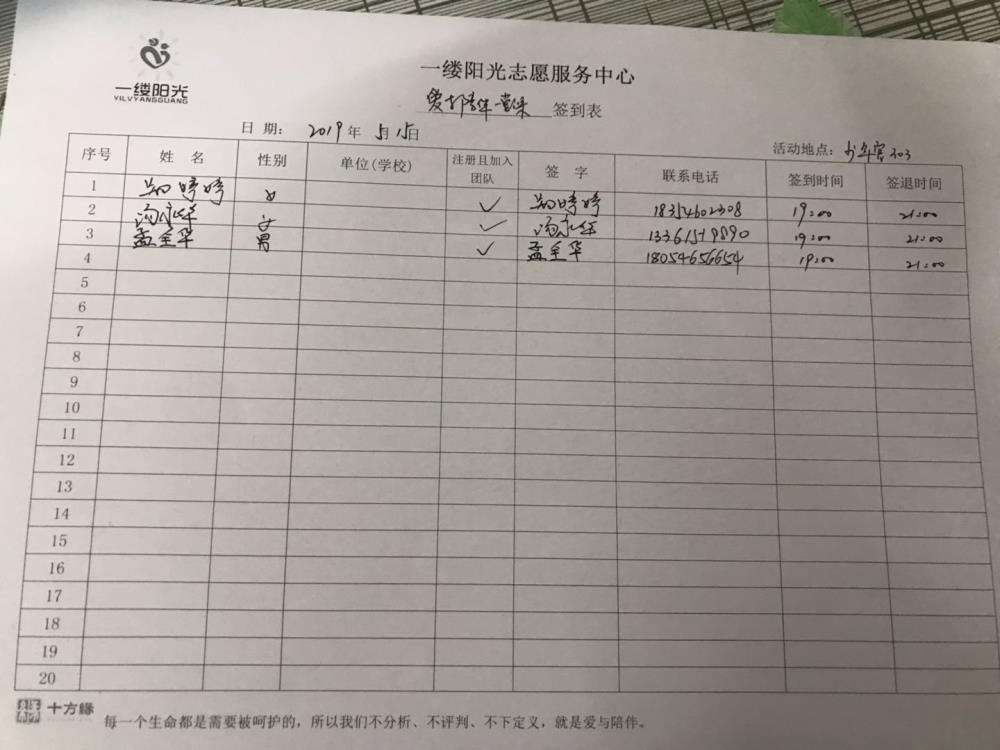 一缕阳光
YILVYANGGUANG
一缕阳光志愿服务中心
签到表
日期: 2019年5月15日
活动地点: 少年宫303
序号 姓名 性别 单位(学校) 注册且加入团队 签字 联系电话 签到时间 签退时间
1 婷婷 女 ✓ 婷婷 18354602308 19:00 21:00
2 女 ✓ 13361519890 19:00 21:00
3 孟全华 男 ✓ 孟全华 18054656654 19:00 21:00
4
5
6
7
8
9
10
11
12
13
14
15
16
17
18
19
20
十方缘 每一个生命都是需要被呵护的，所以我们不分析、不评判、不下定义，就是爱与陪伴。